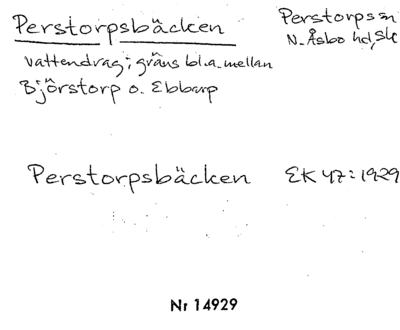 Perstorpsbäcken
Perstorps sn
N. Åsbo hd, Sk
vattendrag; gräns bl.a. mellan
Björstorp o. Ebbarp
Perstorpsbäcken EK 47:1929
Nr 14929